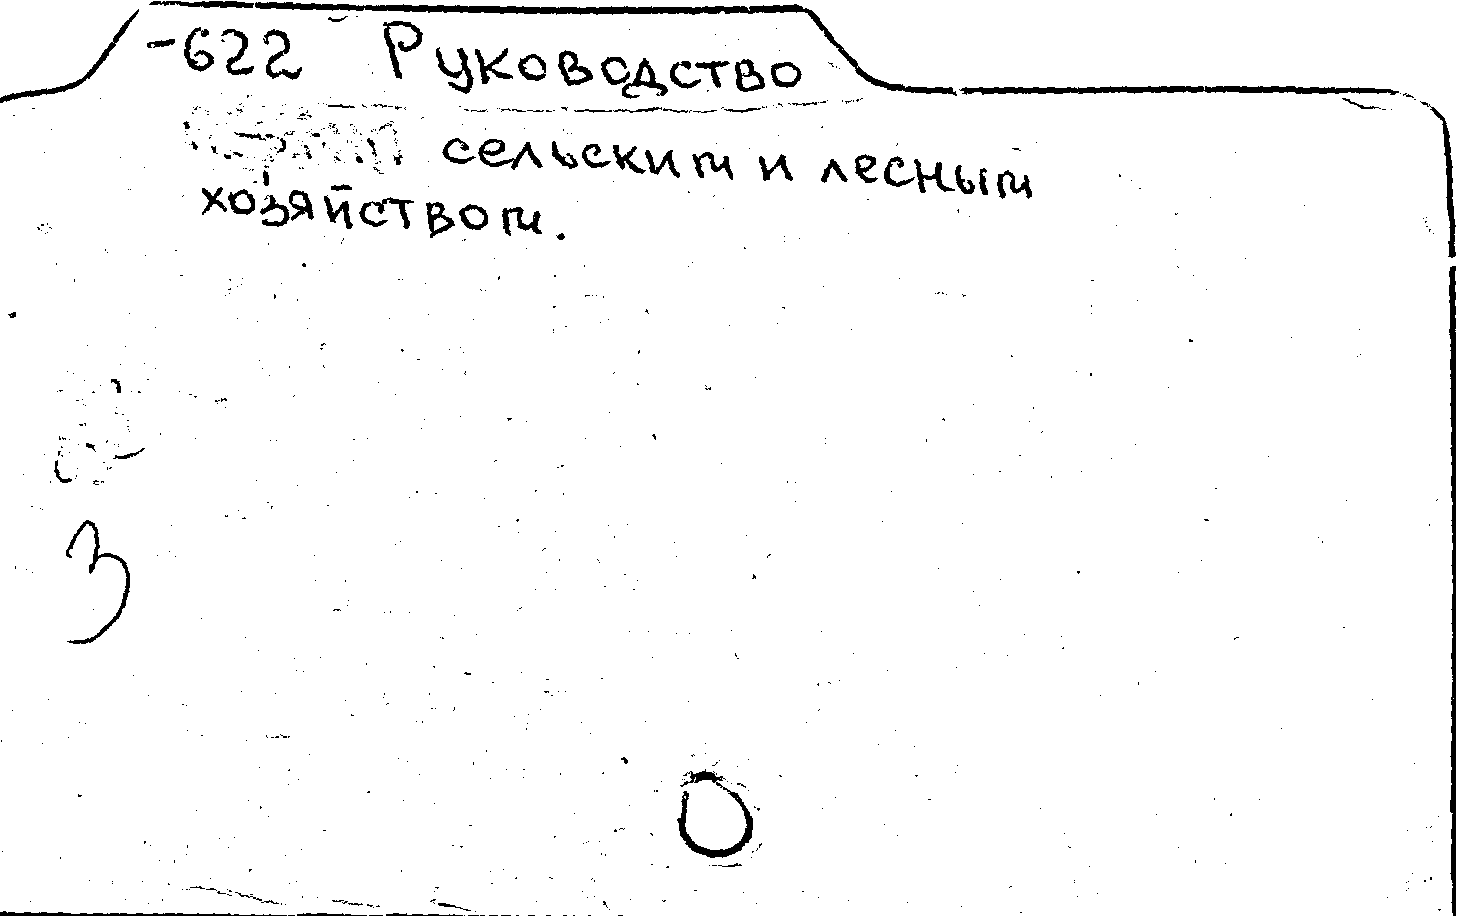 -622 Руководство
сельским и лесным
хозяйством.
3